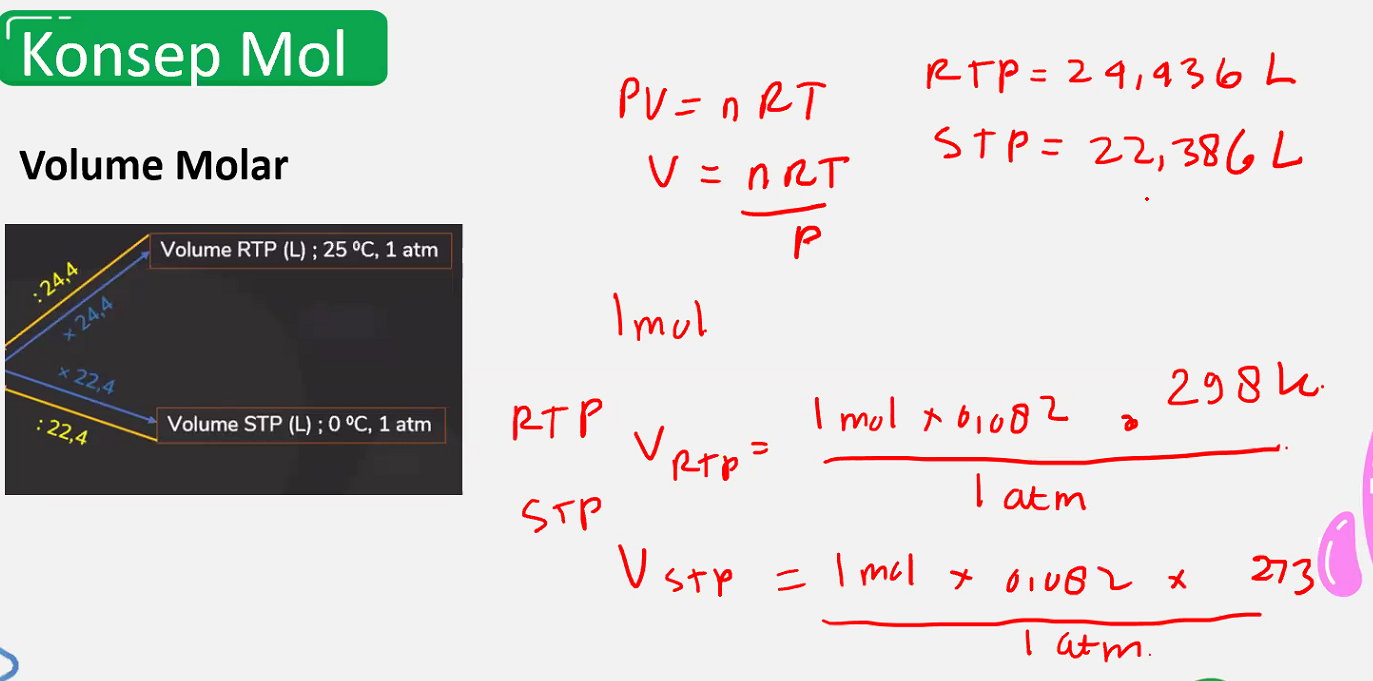 Konsep Mol
Volume Molar
: 24,4
x 24,4
Volume RTP (L) ; 25 ⁰C, 1 atm
x 22,4
: 22,4
Volume STP (L) ; 0 ⁰C, 1 atm
PV = n RT
V = nRT
P
RTP = 24,436 L
STP = 22,386 L
1 mol
RTP
V RTP = 1 mol x 0,082 . 298 K.
1 atm
STP
V STP = 1 mol x 0,082 x 273
1 atm.